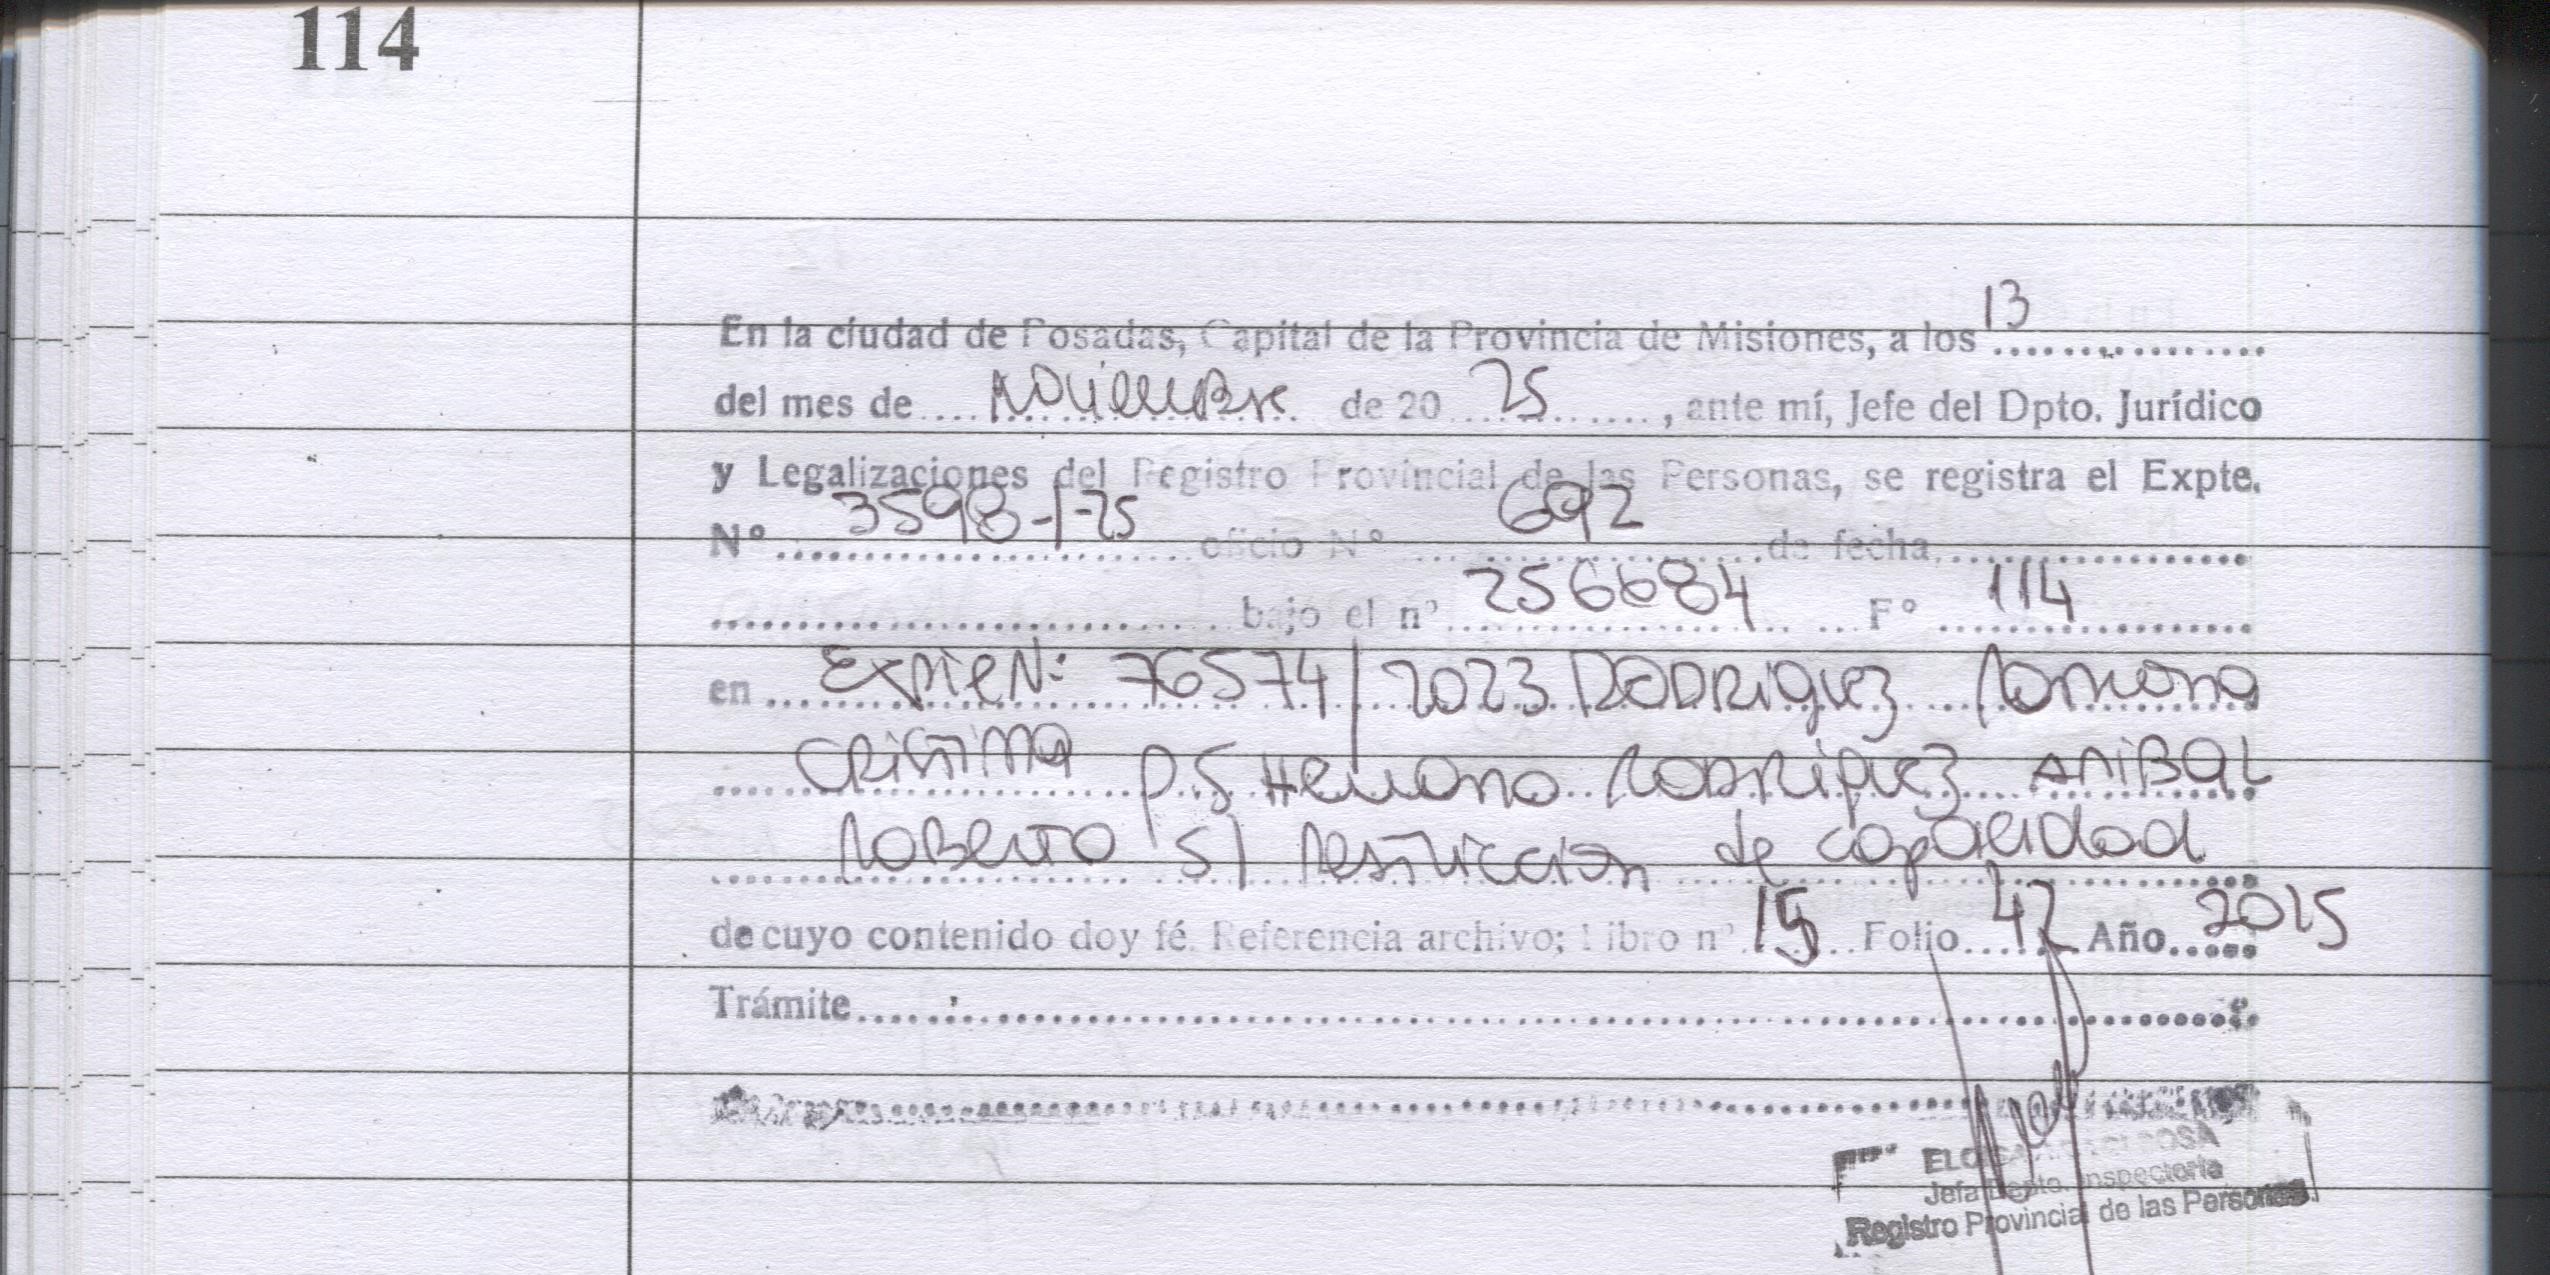 114
En la ciudad de Posadas, Capital de la Provincia de Misiones, a los 13
del mes de Noviembre de 20 25, ante mí, Jefe del Dpto. Jurídico
y Legalizaciones del Registro Provincial de las Personas, se registra el Expte.
Nº 3598-I-25 oficio Nº 692 de fecha
bajo el nº 256684 Fº 114
en Expte N: 76574/2023 RODRIGUEZ Ramona
CRISTINA P.S Hermano RODRIGUEZ ANIBAL
ROBERTO S/ Restriccion de capacidad
de cuyo contenido doy fé. Referencia archivo; Libro nº 15 Folio 42 Año 2025
Trámite
Jefa Depto. Inspectoria
Registro Provincial de las Personas